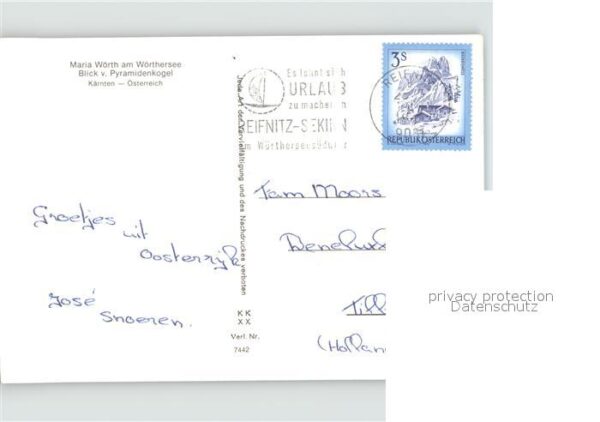 Maria Wörth am Wörthersee
Blick v. Pyramidenkogel
Kärnten — Österreich
Jede Art der Vervielfältigung und des Nachdruckes verboten
Es lohnt sich
URLAUB
zu machen in
REIFNITZ-SEKIRN
am Wörtherseesüdufer
REIFNITZ
3S
REPUBLIK ÖSTERREICH
Groetjes
uit
Oostenrijk
José
Snoeren.
Tam Moors
Benelux
Till
(Hollan
KK
XX
Verl. Nr.
7442
privacy protection
Datenschutz